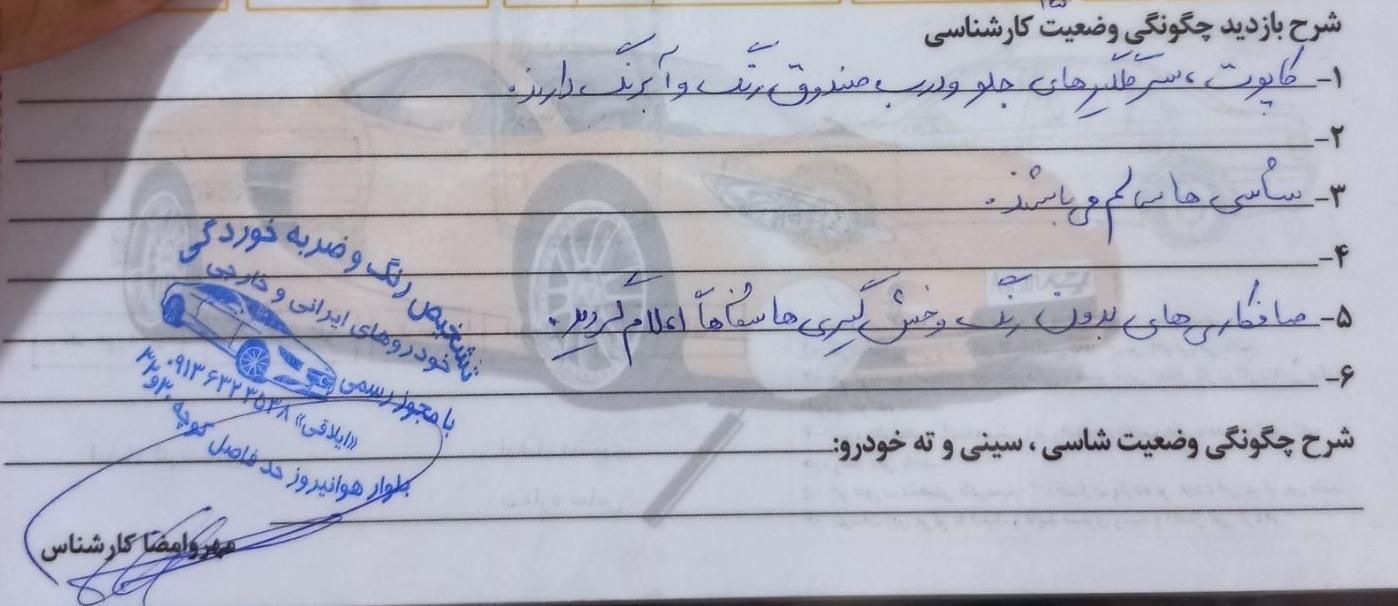 شرح بازدید چگونگی وضعیت کارشناسی
۱- کاپوت، سرگلگیرهای جلو ودرب صندوق رنگ و آبرنگ دارند.
۲-
۳- شاسی ها سالم می باشند.
۴-
۵- صافکاری های بدون رنگ و خش گیری ها شفاهاً اعلام گردید.
۶-
شرح چگونگی وضعیت شاسی ، سینی و ته خودرو:
تشخیص رنگ و ضربه خوردگی
خودروهای ایرانی و خارجی
با مجوز رسمی
«ایلاقی» ۰۹۱۳۶۳۲۳۵۳۸
بلوار هوانیروز حد فاصل کوچه ۳۰و۳۲
مهروامضا کارشناس